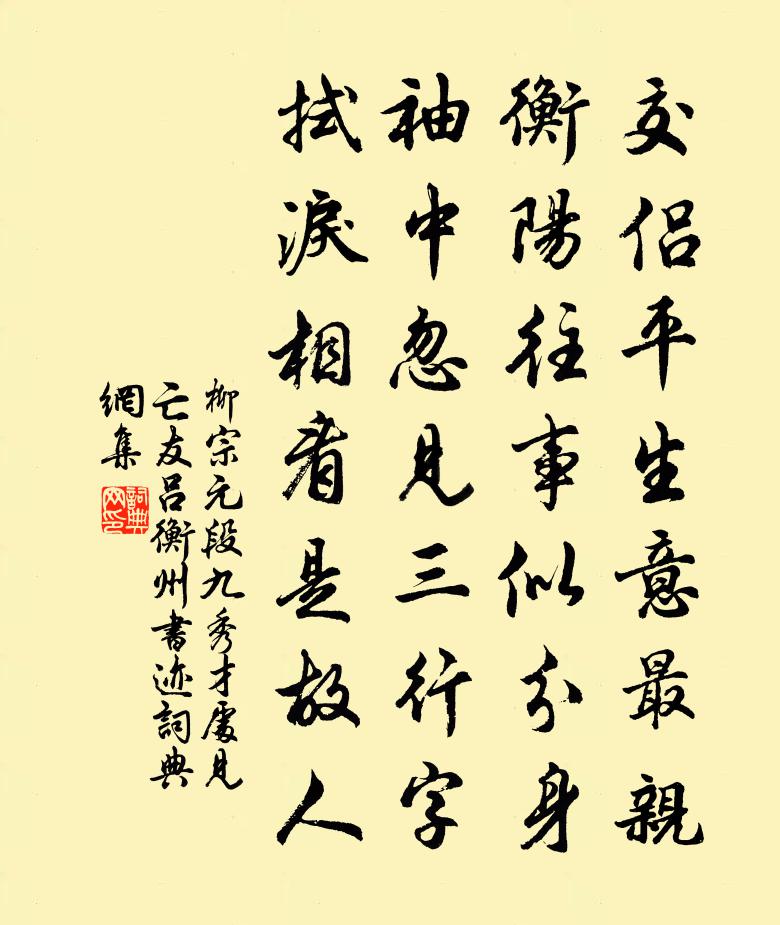 交侣平生意最親
衡陽往事似分身
袖中忽見三行字
拭淚相看是故人
柳宗元段九秀才處見
亡友呂衡州書迹詞典
網集
詞典
网印